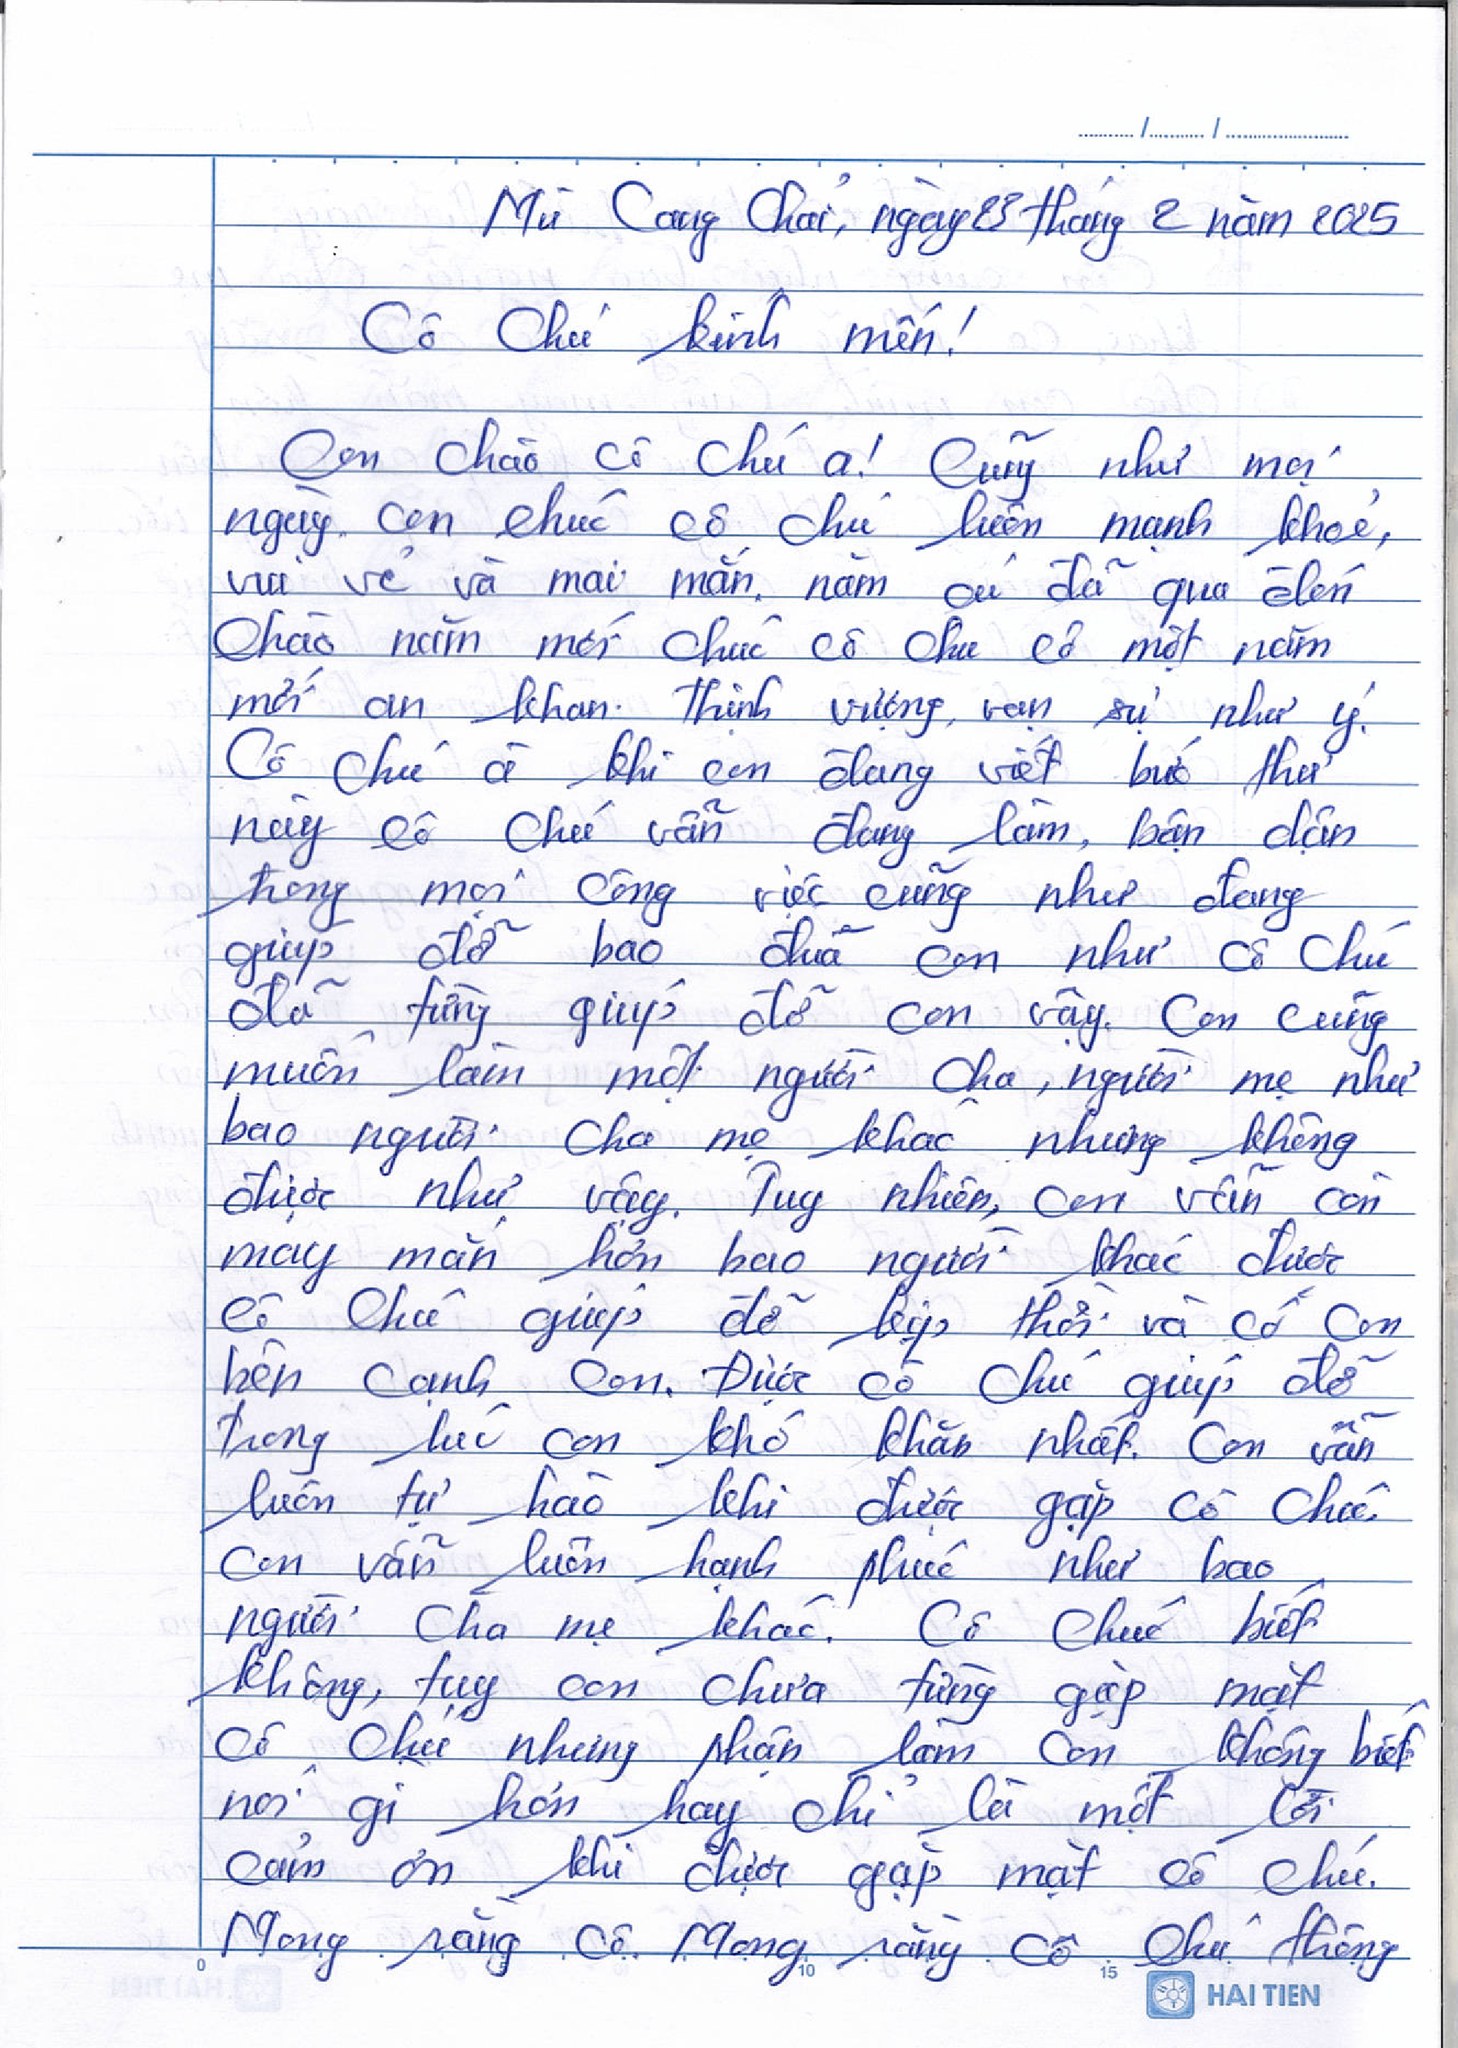 Mù Cang Chải, ngày 23 tháng 2 năm 2025
Cô Chú kính mến!
Con chào cô chú ạ! Cũng như mọi
ngày. con chúc cô chú luôn mạnh khoẻ,
vui vẻ và mai mắn. năm cũ đã qua đến
chào năm mới chúc cô chú có một năm
mới an khan. thịnh vượng, vạn sự như ý.
Cô chú à khi con đang viết bức thư
này cô chú vẫn đang làm, bận dận
trong mọi công việc cũng như đang
giúp đỡ bao đứa con như cô chú
đã từng giúp đỡ con vậy. Con cũng
muốn làm một người cha, người mẹ như
bao người cha mẹ khác nhưng không
được như vậy. Tuy nhiên, con vẫn còn
may mắn hơn bao người khác được
cô chú giúp đỡ kịp thời và có con
bên cạnh con. Được cô chú giúp đỡ
trong lúc con khó khăn nhất. Con vẫn
luôn tự hào khi được gặp cô chú.
con vẫn luôn hạnh phúc như bao
người cha mẹ khác. Cô chúc biết
không, tuy con chưa từng gặp mặt
cô chú nhưng phận làm con không biết
nói gì hơn hay chỉ là một lời
cảm ơn khi được gặp mặt cô chú.
Mong rằng cô. Mong rằng cô chú thông
0 10 15
HAI TIEN